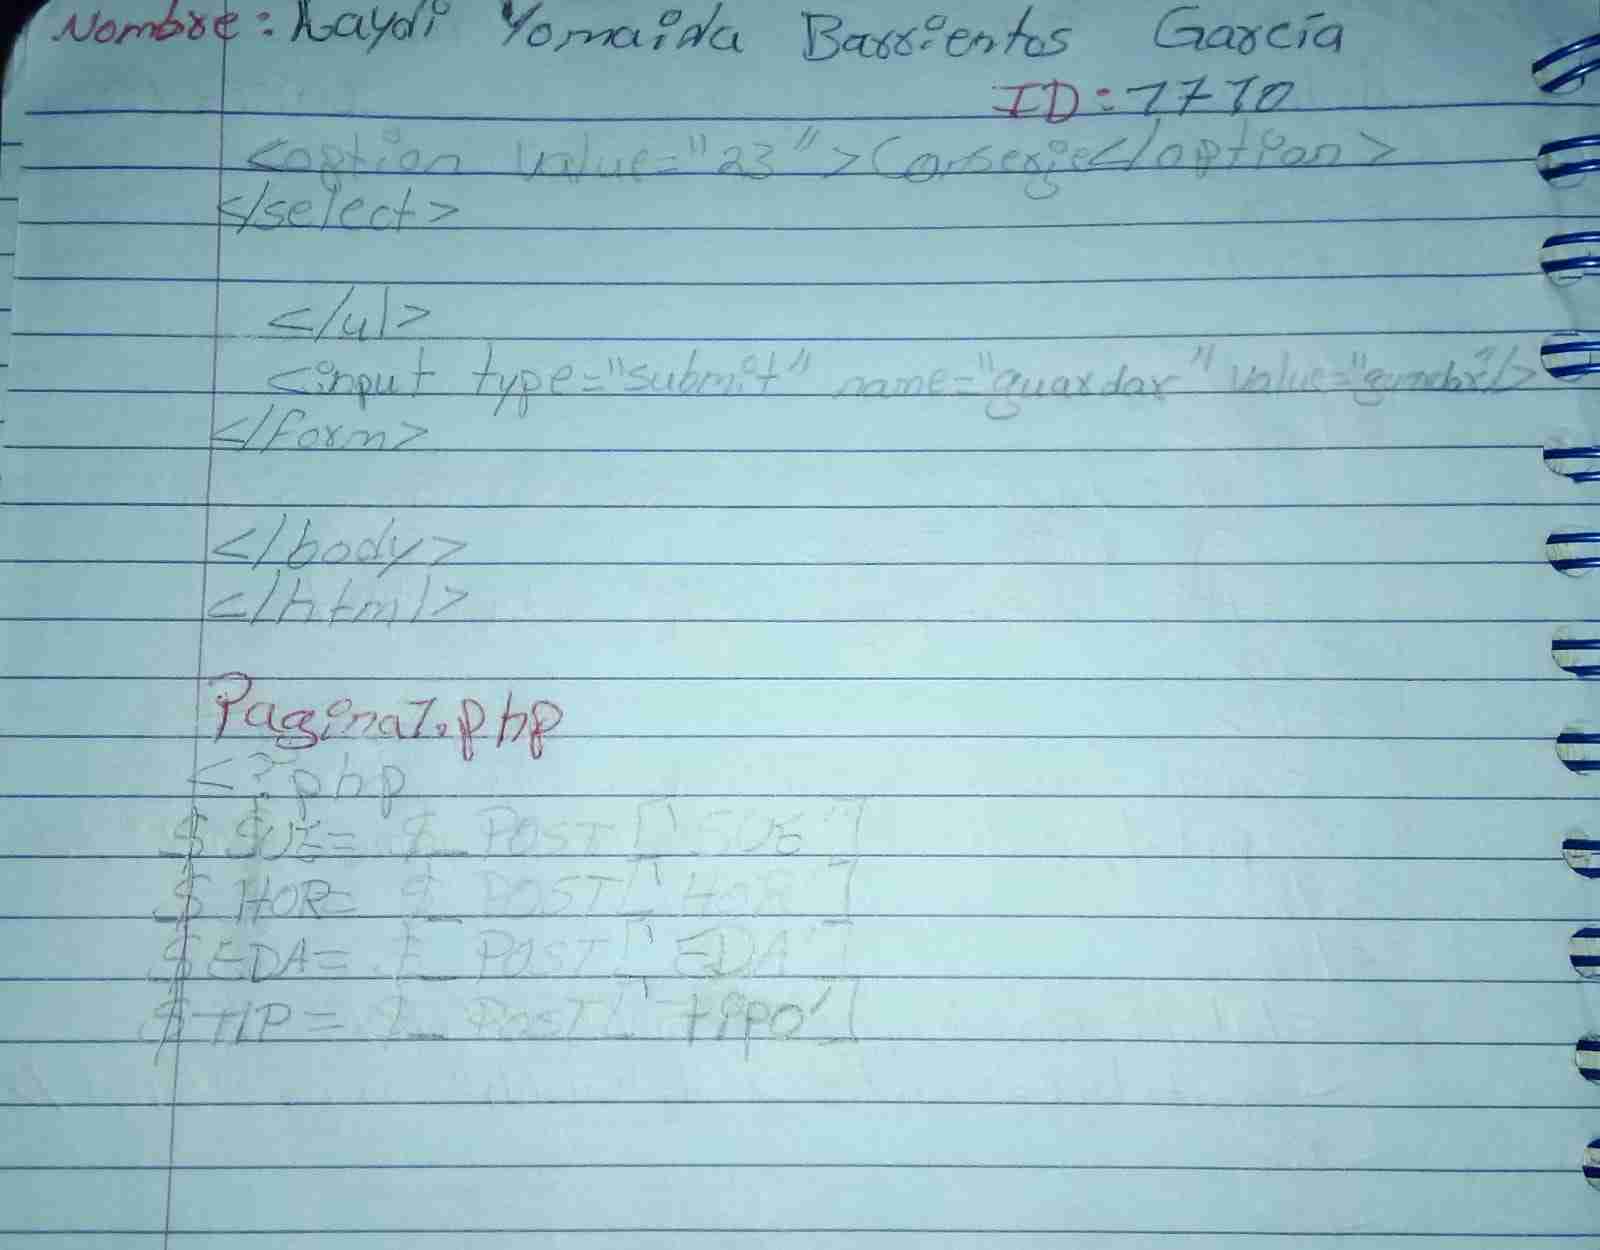 Nombre: Laydi Yomaida Barrientos García
ID: 1710
<option value="23">Conserje</option>
</select>
</ul>
<input type="submit" name="guardar" value="guardar"/>
</form>
</body>
</html>
Pagina1.php
<?php
$ SUE= $_POST['SUE']
$ HOR= $_POST['HOR']
$ EDA= $_POST['EDA']
$ TIP= $_POST['tipo']